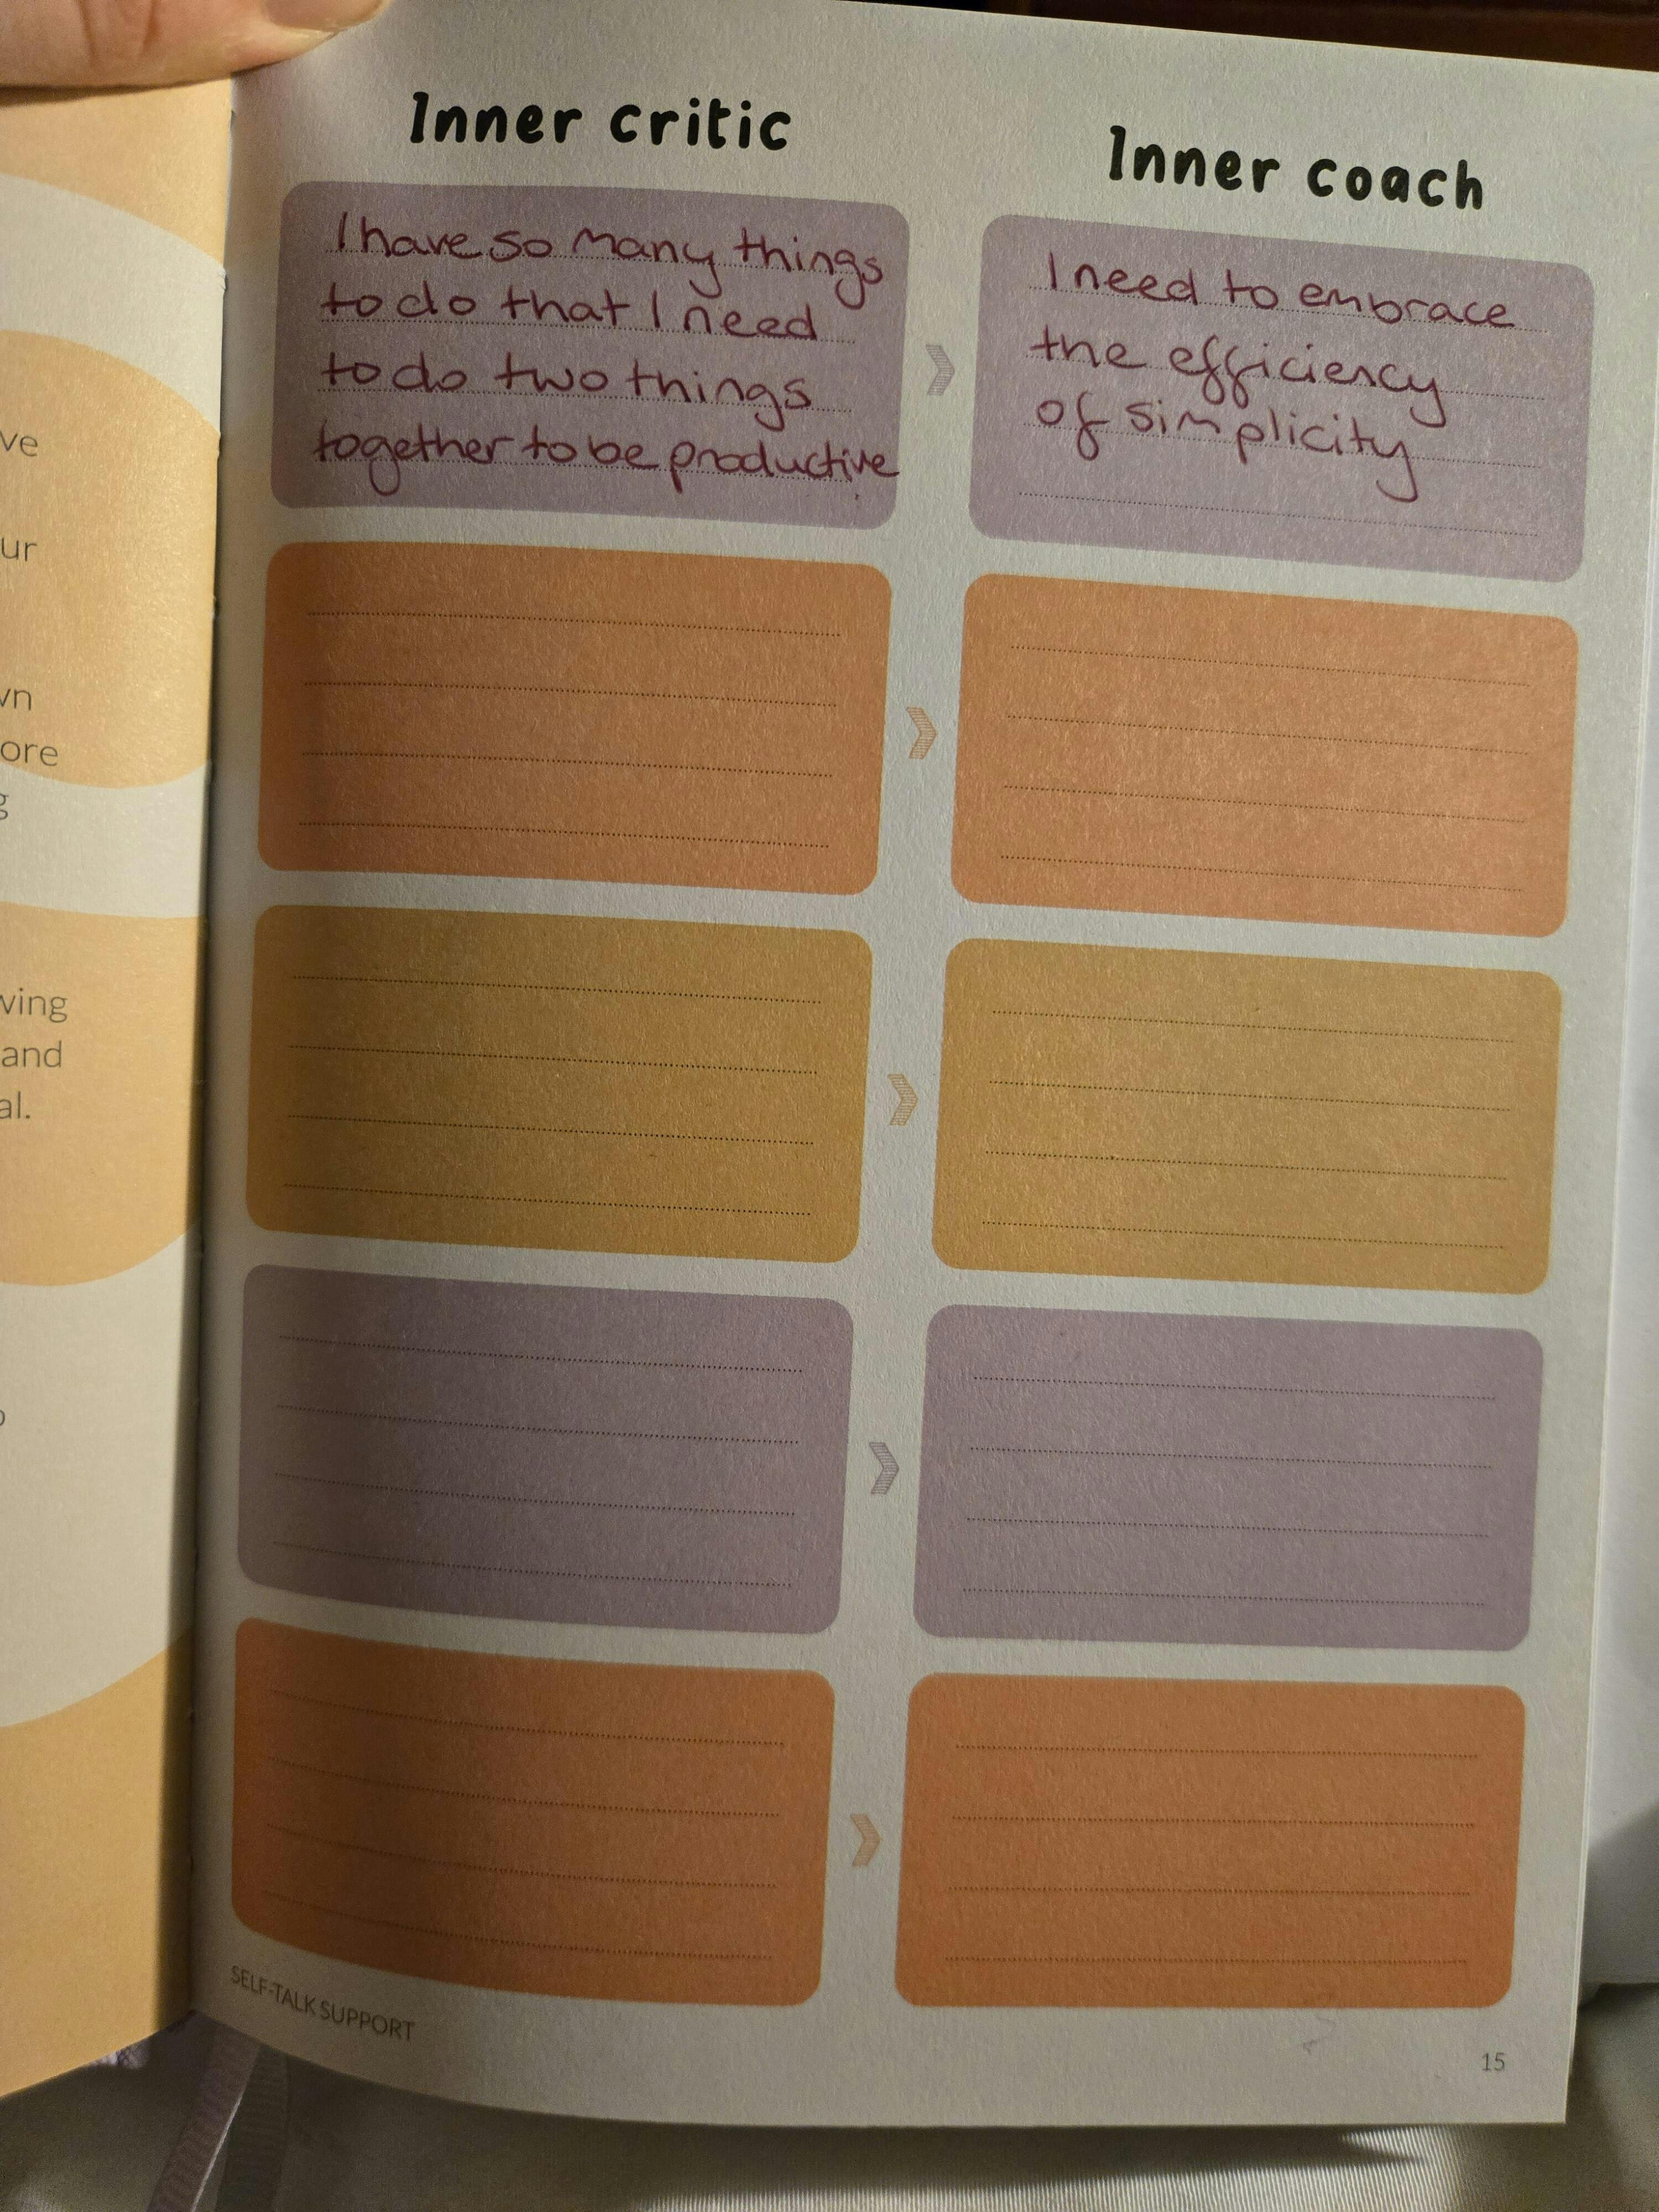 ve
ur
wn
ore
g
wing
and
al.
Inner critic
I have so many things
to do that I need
to do two things
together to be productive
Inner coach
I need to embrace
the efficiency
of simplicity
SELF-TALK SUPPORT
15